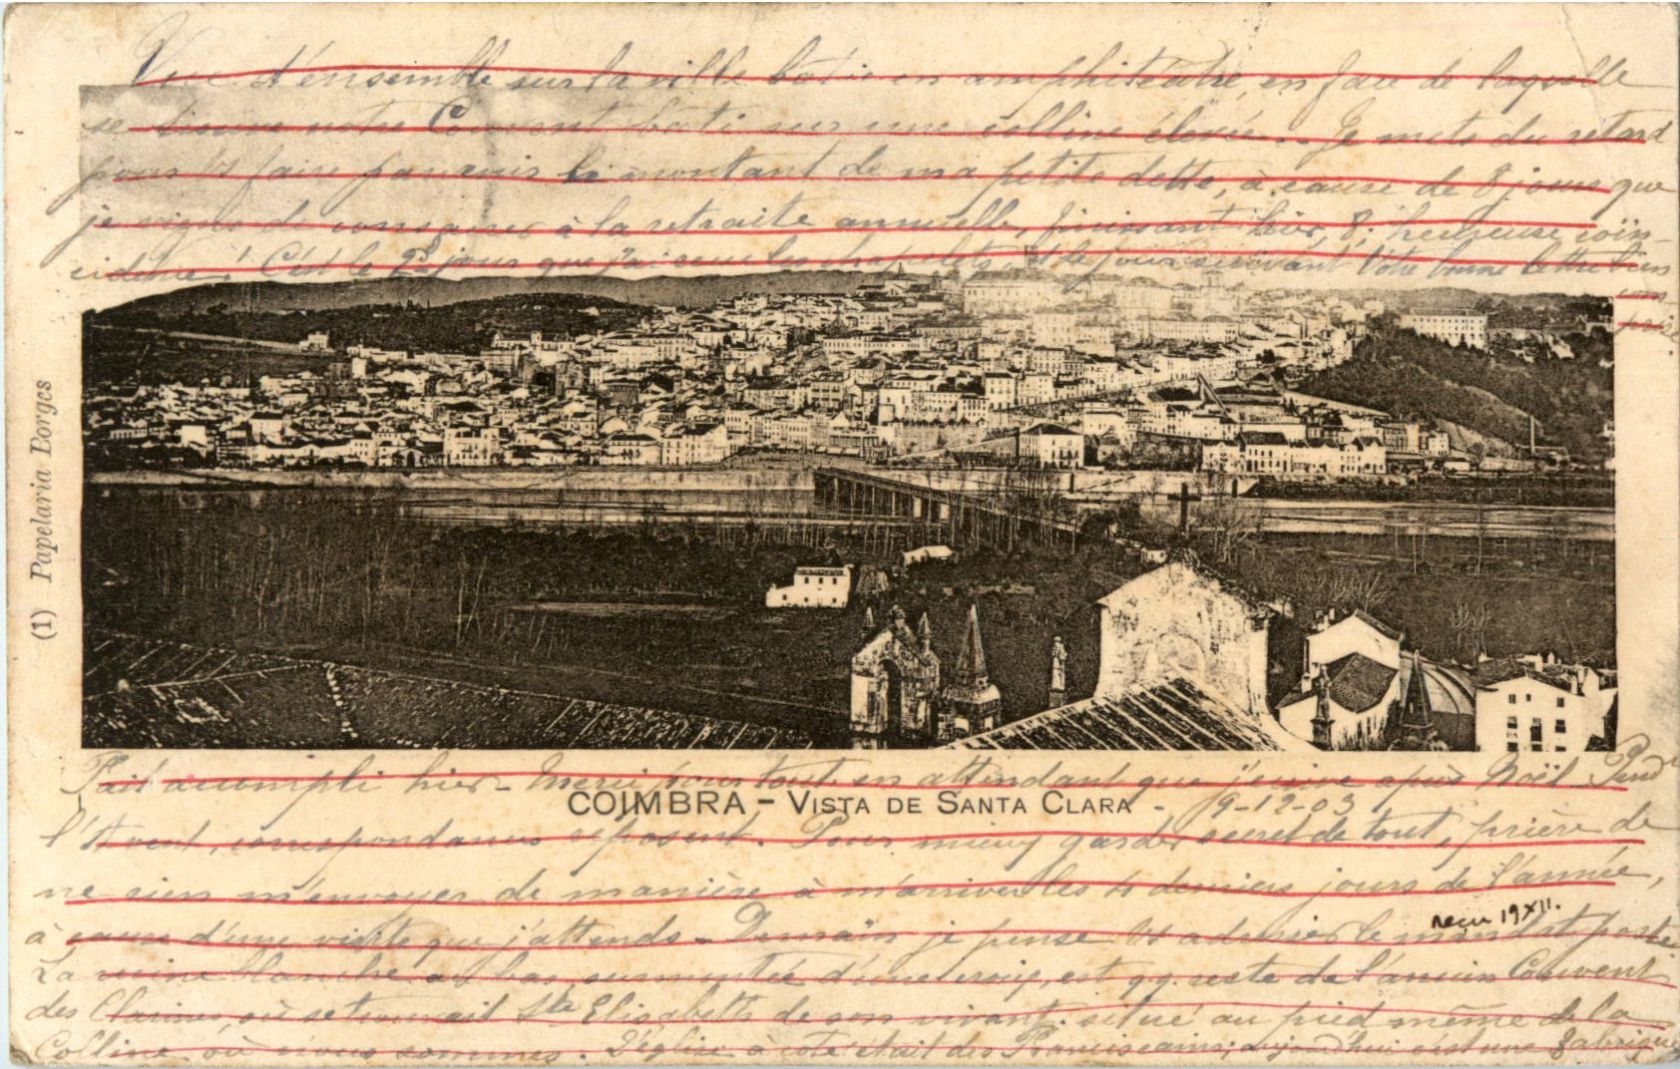 Vue d'ensemble sur la ville bâtie en amphitéâtre, en face de laquelle
se trouve notre Couvent bâti sur une colline élevée... Je mets du retard
pour faire parvenir le montant de ma petite dette, à cause de 8 jours que
je viens de consacrer à la retraite annuelle, finissant hier, 8. heureuse coïn-
cidence! C'est le 2e jour que j'ai reçu les chapelets et le jour suivant Votre bonne lettre bien
(1) Papelaria Borges
Fait accompli hier - Merci pour tout en attendant que j'écrive après Noël. Pendt
COIMBRA - VISTA DE SANTA CLARA - 9-12-03
l'Avent, correspondances reposent. Pour mieux garder secret de tout, prière de
ne rien m'envoyer de manière à m'arriver les 4 derniers jours de l'année,
reçu 19 XII.
à cause d'une visite que j'attends - Demain je pense adresser le mandat poste
La ruine blanche au bas surmontée d'une croix, est q.q. reste de l'ancien Couvent
des Clarisses, où se trouvait Ste Elisabeth de son vivant. situé au pied même de la
Colline où nous sommes. L'église à côté était des Franciscains; aujourd'hui c'est une Fabrique